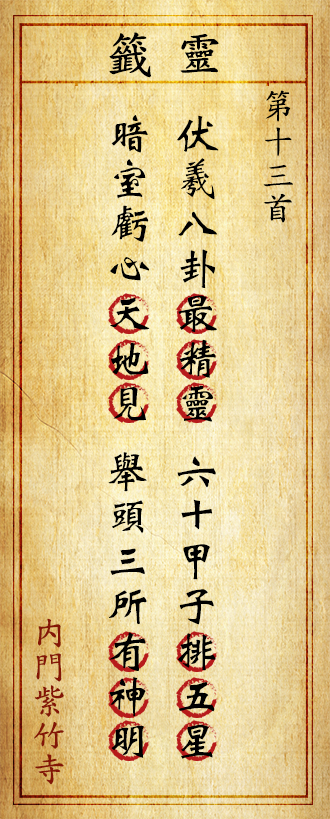 靈籤
第十三首
伏羲八卦最精靈
六十甲子排五星
暗室虧心天地見
舉頭三所有神明
內門紫竹寺